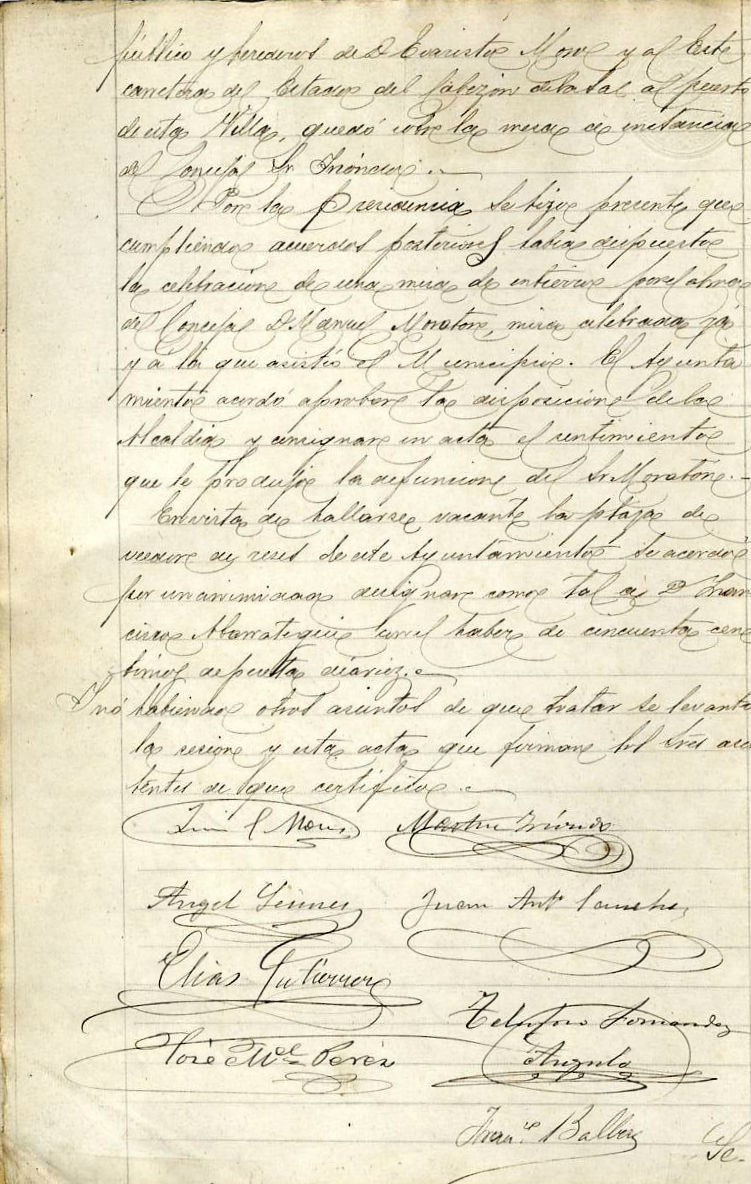 público y herederos de D Evaristo Mora y al Este
carretera del Estado del Cabezón de la Sal al puerto
de esta Villa, quedó sobre la mesa a instancia
del Concejal Sr Inónda.
Por la Presidencia se hizo presente, que
cumpliendo acuerdos posteriores había dispuesto
la celebración de una misa de entierro por el alma
del Concejal D. Manuel Moraton, misa celebrada ya
y á la que asistió el Municipio. El Ayunta
miento acordó aprobar la disposición de la
Alcaldia y consignar en acta el sentimiento
que le produjo la defuncion del Sr Moraton.
En vista de hallarse vacante la plaza de
veedor de reses de este Ayuntamiento se acordó
por unanimidad designar como tal á D Fran
cisco Marrategui con el haber de cincuenta cen
timos de peseta diarios.
Y no habiendo otros asuntos de que tratar se levanta
la sesion y esta acta que firman los Sres asis
tentes de que certifico.
Mora
Angel Juan Antº Sanchez
Elias Gutierrez
Telesforo Fernandez
José Mª Perez Angulo
Balbas